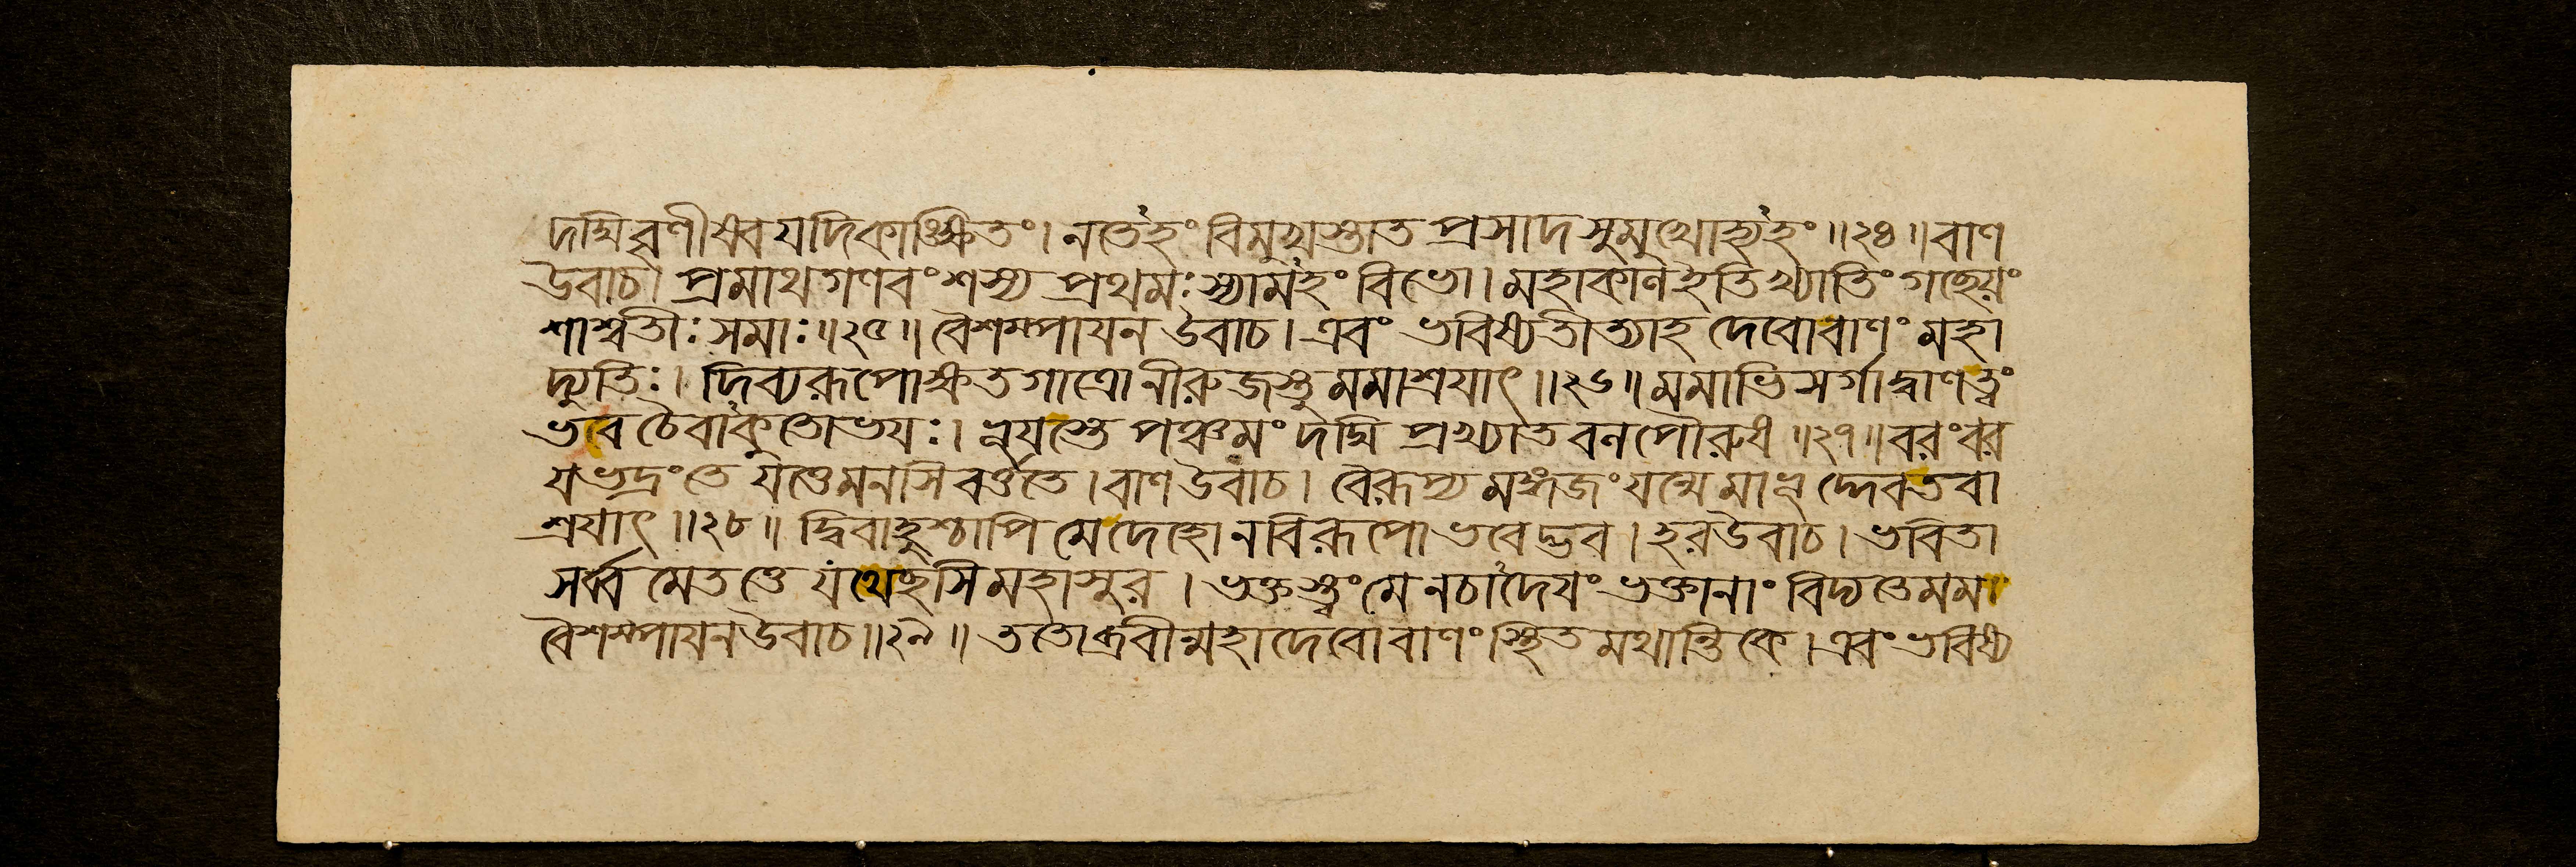 দদ্মি বৃণীষ্ব যদি কাঙ্ক্ষিতং। ন তেহং বিমুখস্তাত প্রসাদসুমুখোহ্যহং॥২৪॥ বাণ
উবাচ। প্রমাথগণবংশস্য প্রথমঃ স্যামহং বিভো। মহাকাল ইতি খ্যাতিং গচ্ছেয়ং
শাশ্বতীঃ সমাঃ॥২৫॥ বৈশম্পায়ন উবাচ। এবং ভবিষ্যতীত্যাহ দেবো বাণং মহা
দ্যুতিঃ। দিব্যরূপোক্ষতগাত্রো নীরুজস্তু মমাশ্রয়াৎ॥২৬॥ মমাভিসর্গাদ্বাণ ত্বং
ভব চৈবাকুতোভয়ঃ। ভূয়স্তে পঞ্চমং দদ্মি প্রখ্যাতবলপৌরুষ॥২৭॥ বরং বর
য় ভদ্রং তে যত্তে মনসি বর্ত্ততে। বাণ উবাচ। বৈরূপ্যমঙ্গজং যন্মে মা ভূদ্দেব তবা
শ্রয়াৎ॥২৮॥ দ্বিবাহুশ্চাপি মে দেহো ন বিরূপো ভবেদ্ভব। হর উবাচ। ভবিতা
সর্ব্বমেতত্তে যথেচ্ছসি মহাসুর। ভক্তস্ত্বং মে ন চাদেয়ং ভক্তানাং বিদ্যতে মম।
বৈশম্পায়ন উবাচ॥২৯॥ ততোব্রবীন্মহাদেবো বাণং স্থিতমথান্তিকে। এবং ভবিষ্য